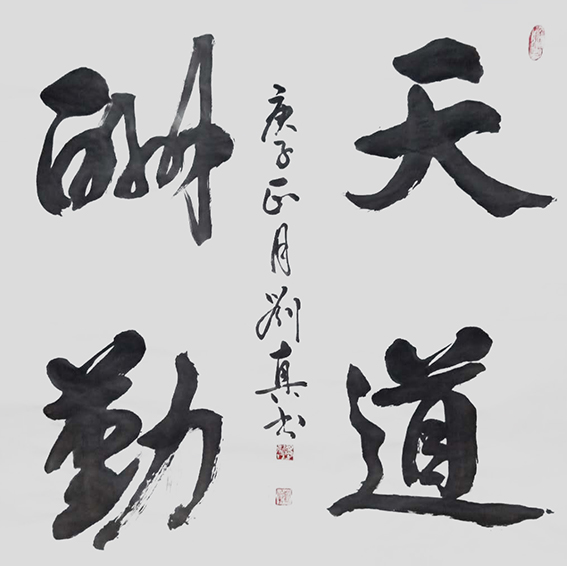 天道
酬勤
庚子正月刘真书